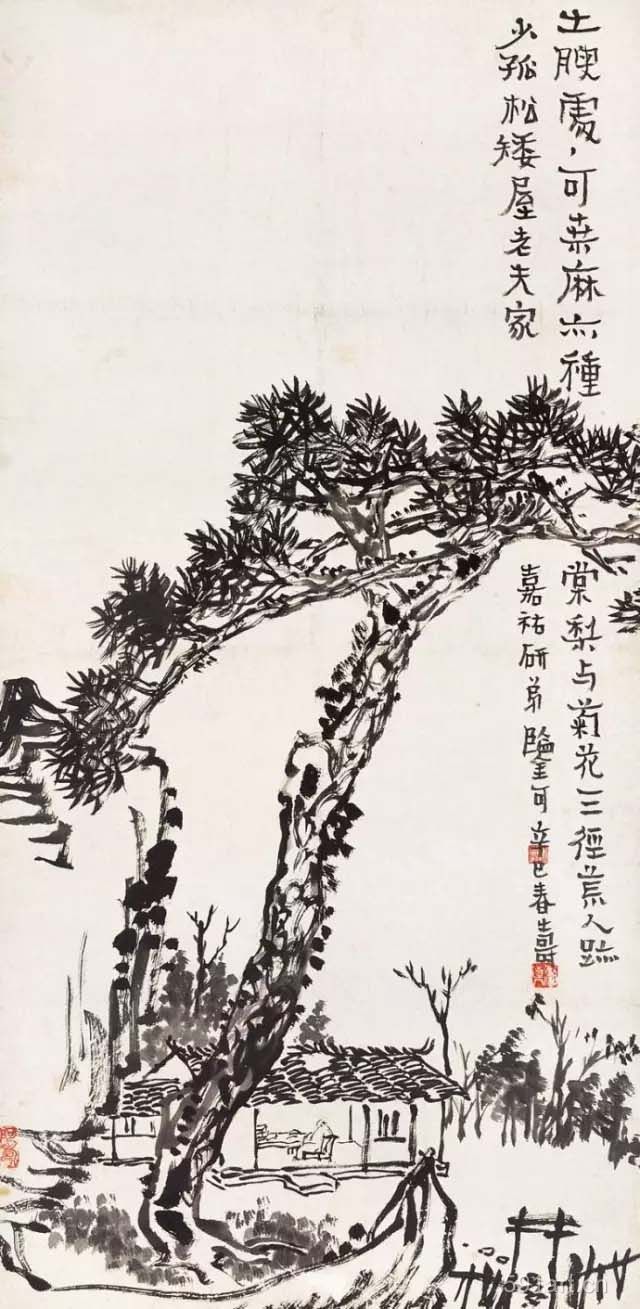 土腴處、可桑麻亦種
棠梨与菊花三徑荒人跡
少孤松矮屋老夫家
嘉祐研弟鑒可辛巳春壽